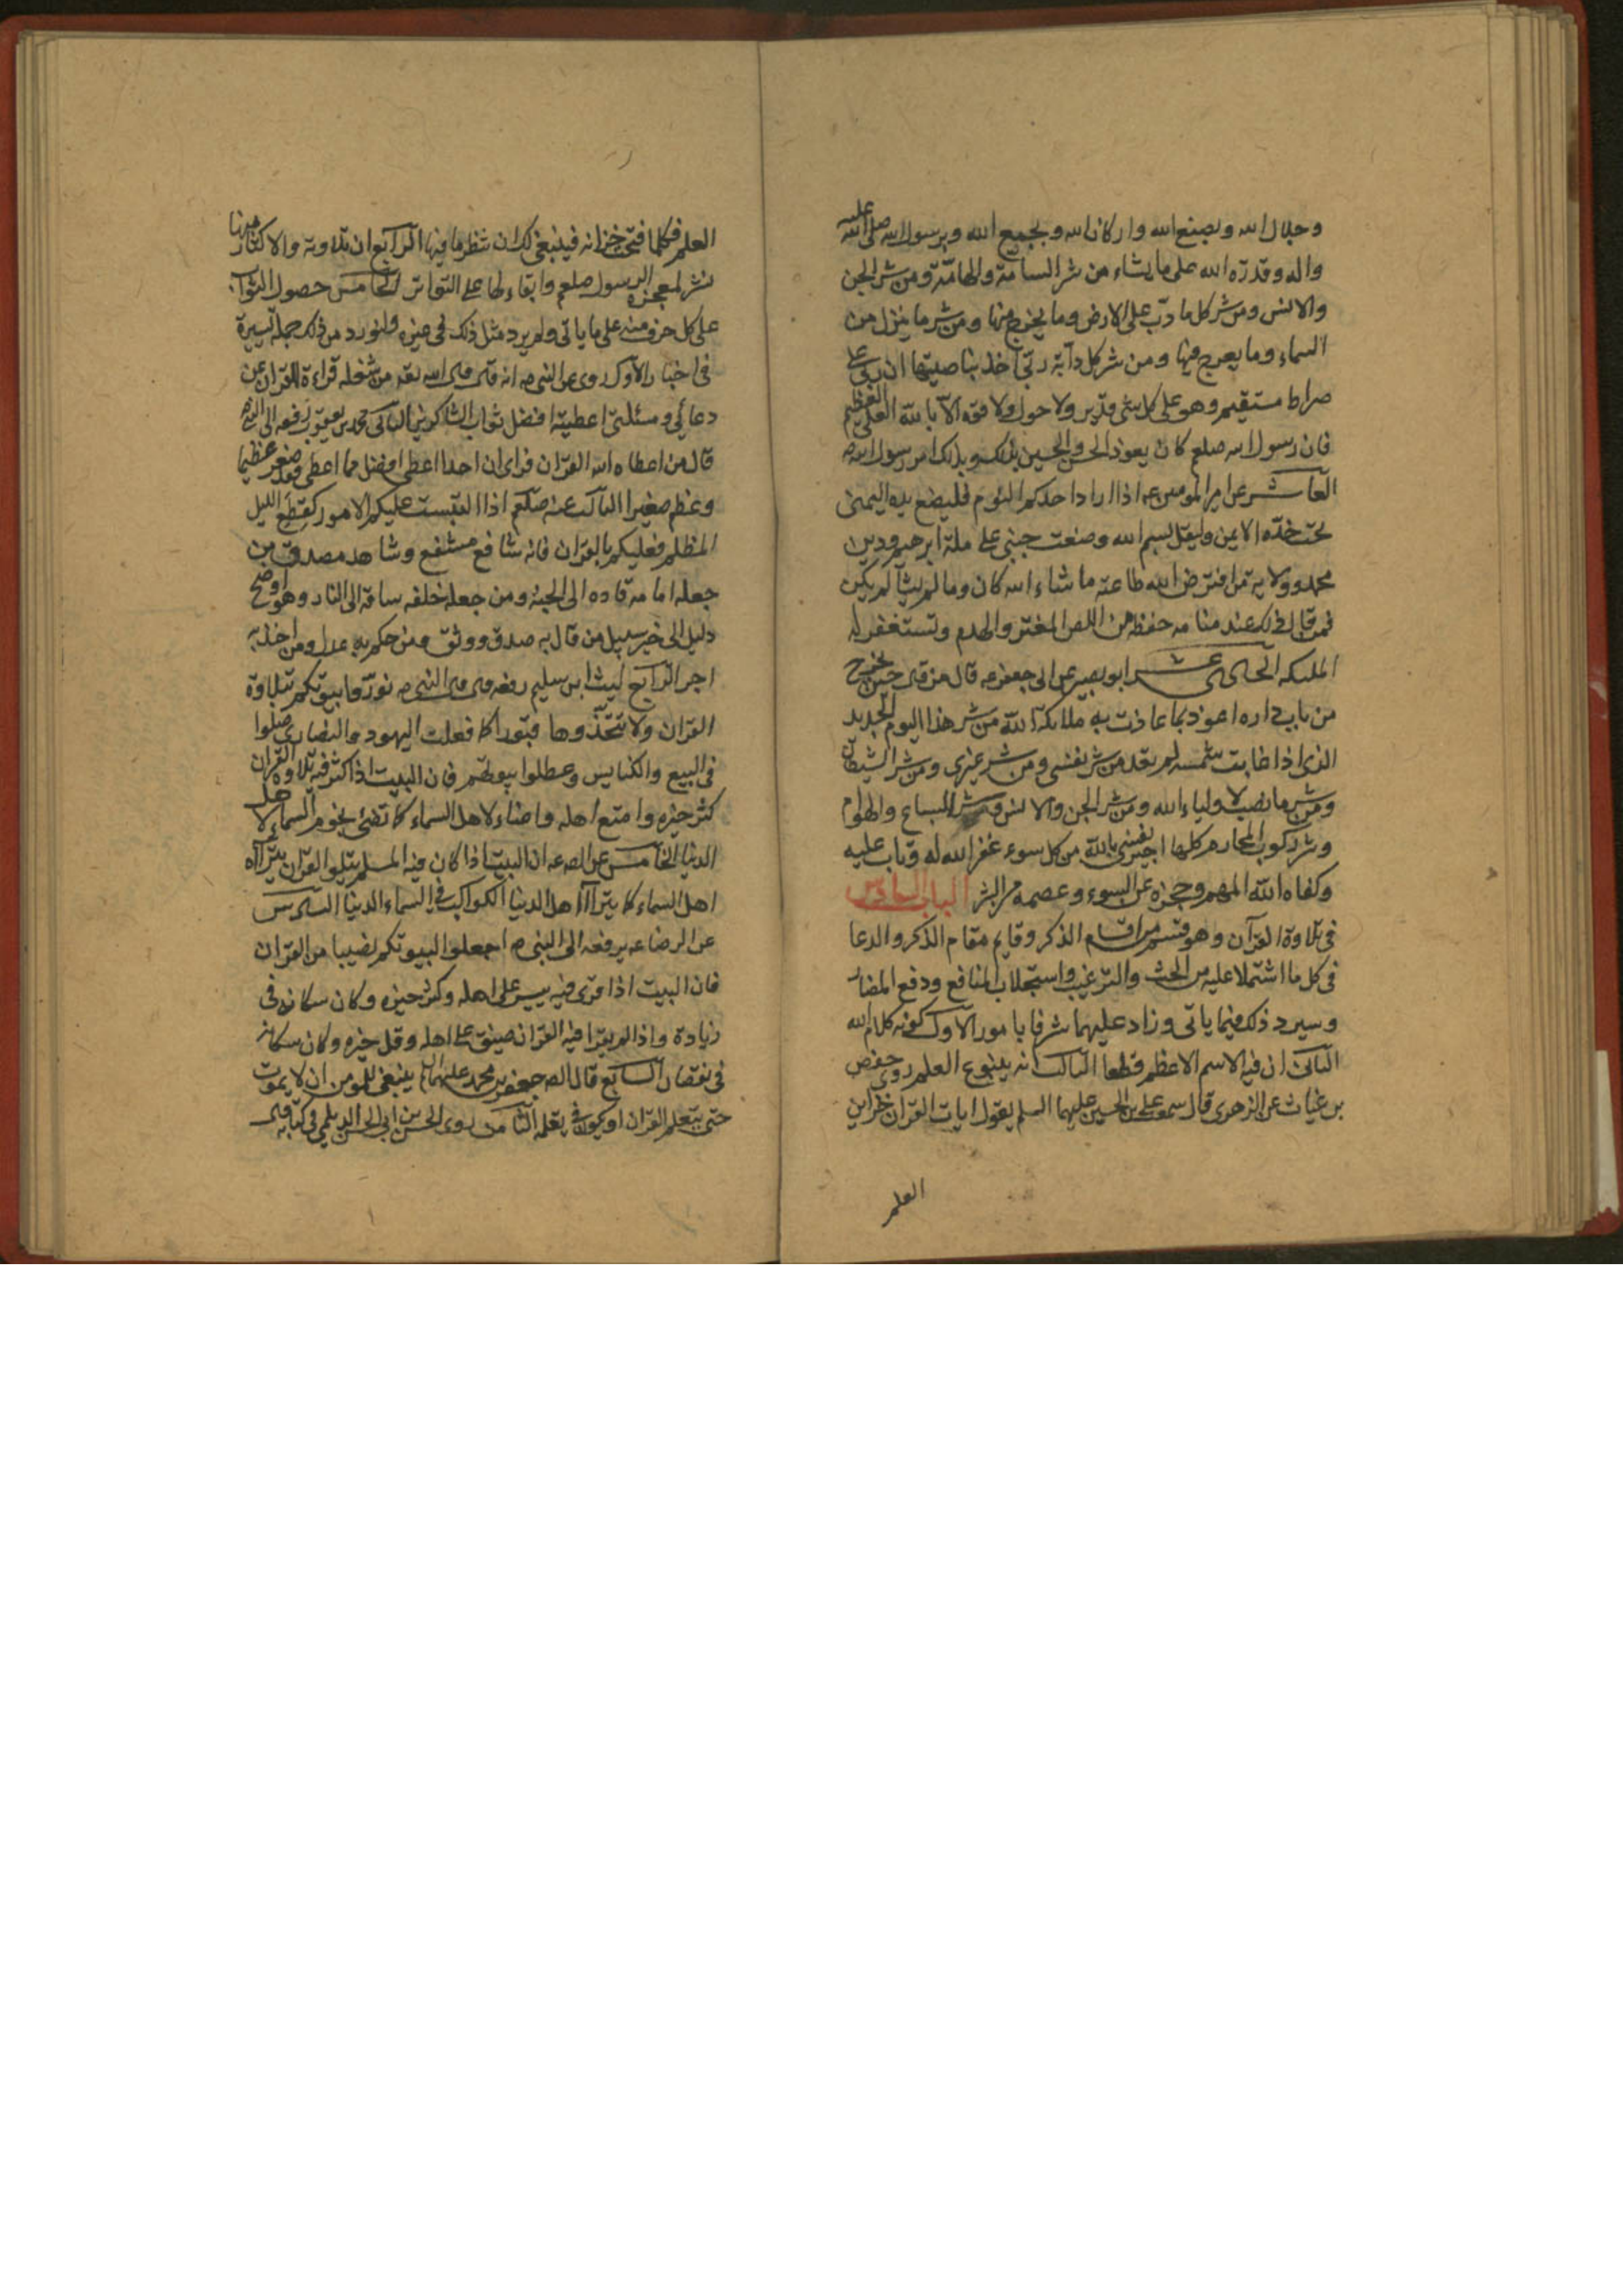 وجلال الله وبصنع الله واركان الله وبجميع الله وبرسول الله صلى الله عليه
واله وقدرة الله على ما يشاء من شر السامة والهامّة ومن شر الجن
والانس ومن شر كل ما دبّ على الارض وما يخرج منها ومن شر ما ينزل من
السماء وما يعرج فيها ومن شر كل دآبة ربى اخذ بناصيتها ان ربى على
صراط مستقيم وهو على كل شئ قدير ولا حول ولا قوة الا بالله العلى العظيم
فان رسول الله صلعم كان يعوذ الحسن والحسين بذلك وبذلك امر رسول الله ص
العاشر عن امير المومنين ع اذا اراد احدكم النوم فليضع يده اليمنى
تحت خدّه الايمن وليقل بسم الله وضعت جنبى على ملة ابرهيم ودين
محمد وولاية من افترض الله طاعته ما شاء الله كان وما لم يشآ لم يكن
فمن قال ذلك عند منامه حفظ من اللص المغتر والهدم وتستغفر له
الملئكه الحادى عشر ابو بصير عن ابى جعفر ع قال من قال حين يخرج
من باب داره اعوذ بما عاذت به ملائكة الله من شر هذا اليوم الجديد
الذى اذا غابت شمسه لم يعد من شر نفسى ومن شر غيرى ومن شر الشيطان
ومن شر من نصب لاولياء الله ومن شر الجن والانس ومن شر السباع والهوام
وشر ركوب المحارم كلها اجير نفسى بالله من كل سوء غفر الله له وتاب عليه
وكفاه الله المهم وحجزه عن السوء وعصمه من الشر الباب السادس
فى تلاوة القرآن وهو قسم من اقسام الذكر وقايم مقام الذكر والدعا
فى كل ما اشتملا عليه من الحث والترغيب واستجلاب المنافع ودفع المضار
وسيرد ذلك فيما ياتى وزاد عليهما شرفا بامور الاول كونه كلام الله
الثانى ان فيه الاسم الاعظم قطعا الثالث انه ينبوع العلم روى حفص
بن غياث عن الزهرى قال سمع على بن الحسين عليهما السلم يقول ايات القران خزاين
العلم
العلم فكلما فتحت خزانه فينبغى لك ان تنظر ما فيها الرابع ان تلاوته والاكثار منها
نشر لمعجزة الرسول صلعم وابقاء لها على التواتر الخامس حصول الثواب
على كل حرف منه على ما ياتى ولم يرد مثل ذلك فى غيره ولنورد من ذلك جملة يسيرة
فى اخبار الاول روى عن النبى ص انه قال قال الله تعه من شغله قراءة القران عن
دعائى ومسئلتى اعطيته افضل ثواب الشاكرين الثانى محمد بن يعقوب رفعه الى النبى ص
قال من اعطاه الله القران فراى ان احدا اعطى افضل مما اعطى فقد صغر عظيما
وعظم صغيرا الثالث عنه صلعم اذا التبست عليكم الامور كقطع الليل
المظلم فعليكم بالقران فانه شافع مشفع وشاهد مصدق من
جعله امامه قاده الى الجنة ومن جعله خلفه ساقه الى النار وهو اوضح
دليل الى خير سبيل من قال به صدق ووثق ومن حكم به عدل ومن اخذ به
اجر الرابع ليث ابن سليم رفعه قال قال النبى ص نوروا بيوتكم بتلاوة
القران ولا تتخذوها قبورا كما فعلت اليهود والنصارى صلوا
فى البيع والكنايس وعطلوا بيوتهم فان البيت اذا كثر فيه تلاوة القران
كثر خيره وامتع اهله واضاء لاهل السماء كما تضئ نجوم السماء لاهل
الدنيا الخامس عن الص ع ان البيت اذا كان فيه المسلم يتلو القران يترآاه
اهل السماء كما يترآا اهل الدنيا الكواكب فى السماء الدنيا السادس
عن الرضا ع يرفعه الى النبى ص اجعلوا لبيوتكم نصيبا من القران
فان البيت اذا قرى فيه يسر على اهله وكثر خيره وكان سكانه فى
زيادة واذا لم يقرا فيه القران ضيق على اهله وقل خيره وكان سكانه
فى نقصان السابع قال الص جعفر بن محمد عليهما السلم ينبغى للمومن ان لا يموت
حتى يتعلم القران او يكون فى تعلمه الثامن روى الحسن بن ابى الحسن الديلمى فى كتابه قال